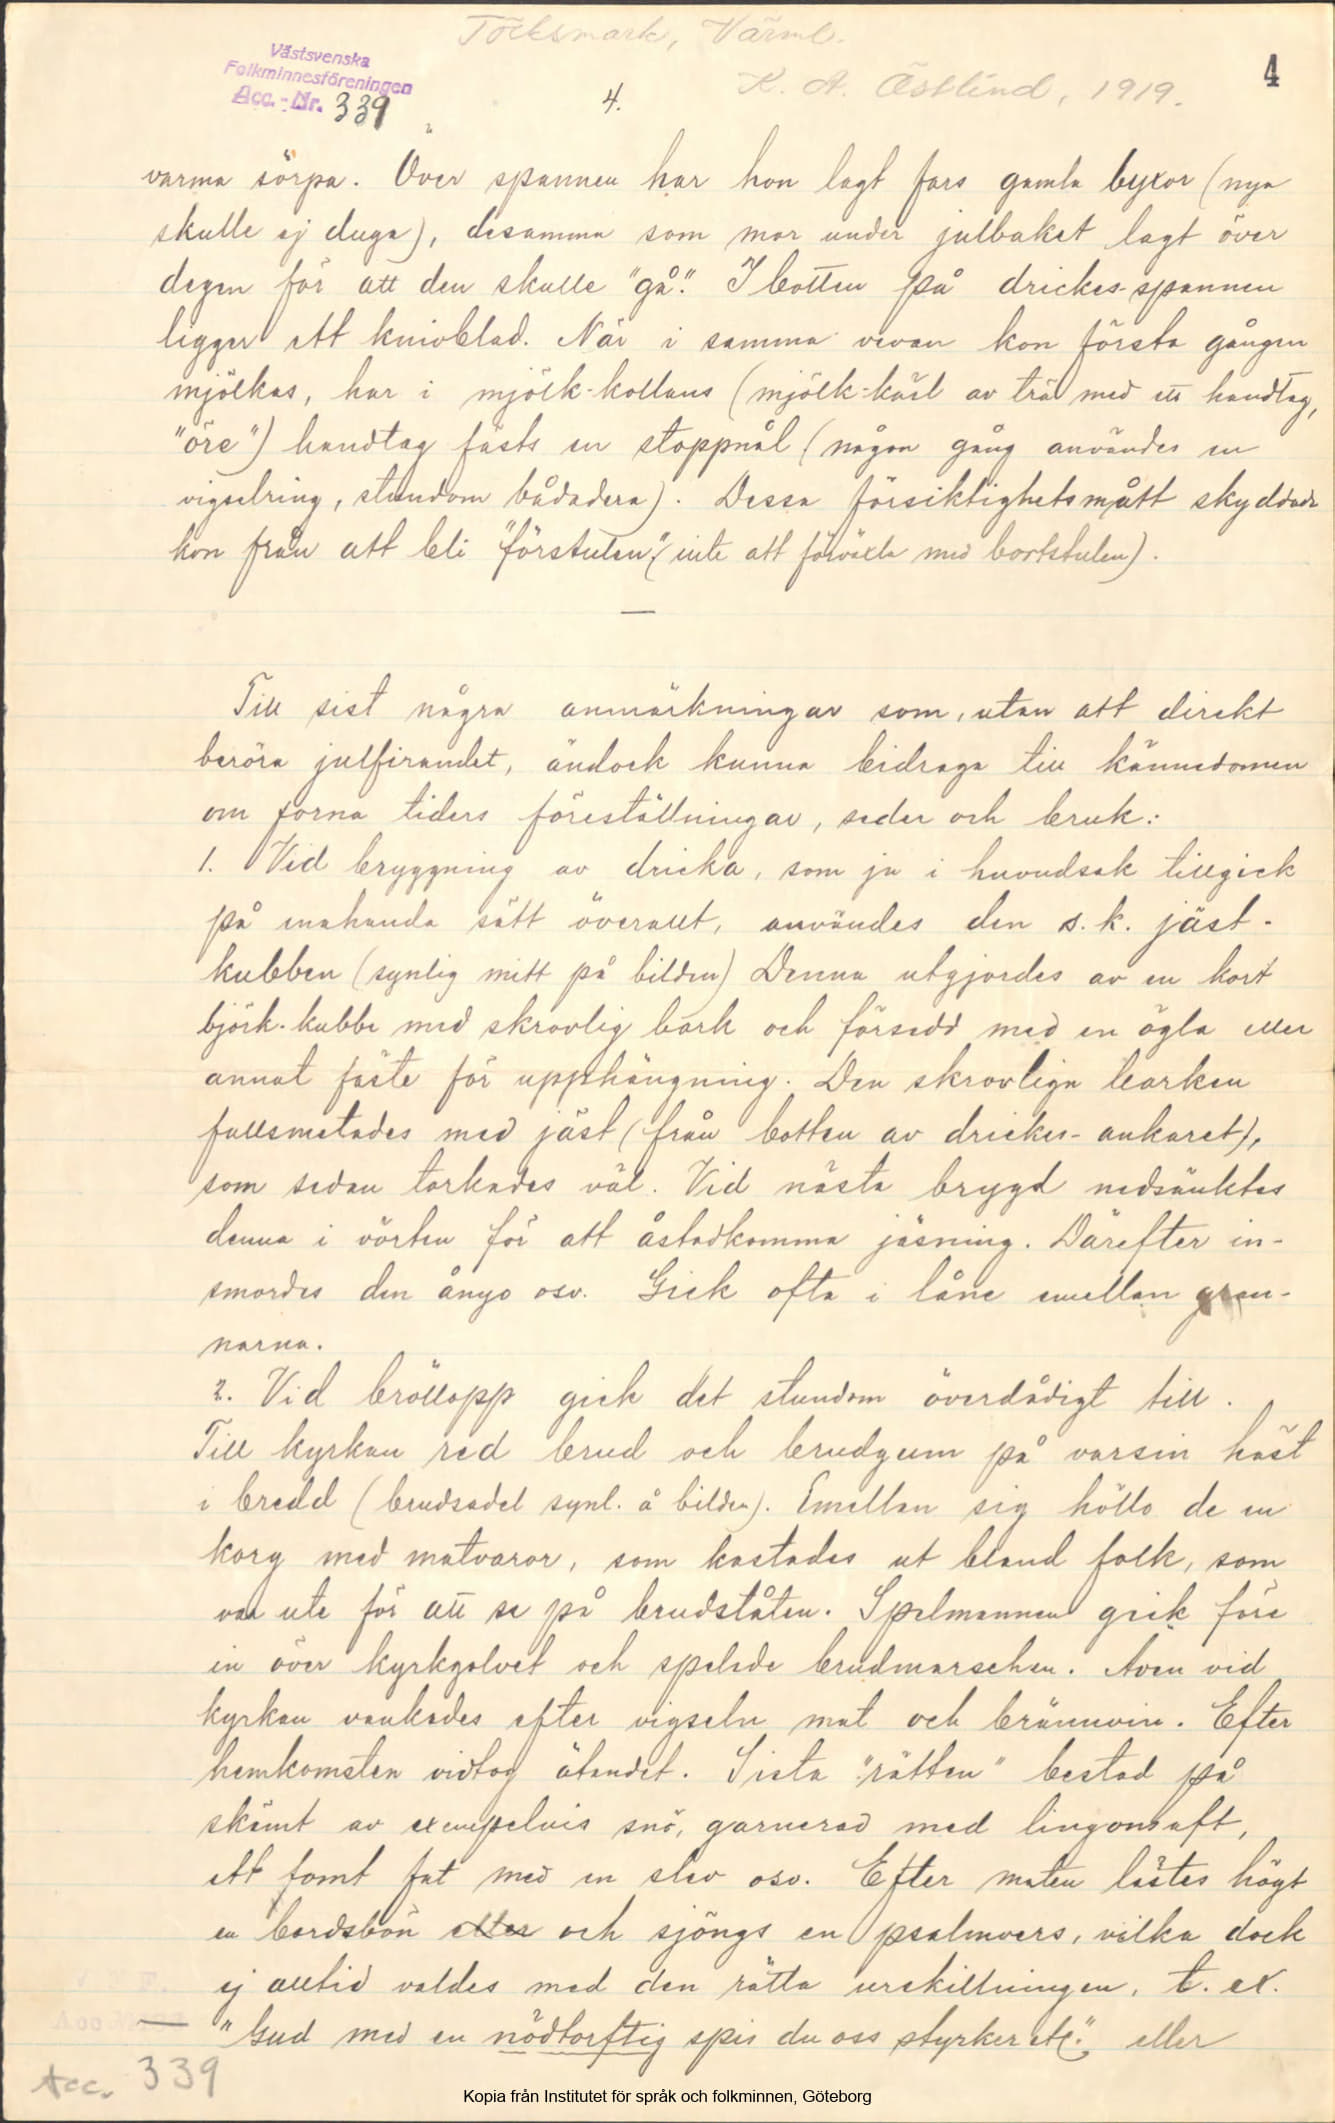 Töcksmark, Värml.
Västsvenska
Folkminnesföreningen
Acc.-Nr. 339
4.
K. A. Östlind, 1919.
4
varma sörpa. Över spannen har hon lagt fars gamla byxor (nya
skulle ej duga), desamma som mor under julbaket lagt över
degen för att den skulle "gå". I botten på drickes-spannen
ligger ett knivblad. När i samma vevan kon första gången
mjölkas, har i mjölk-kollans (mjölk-kärl av trä med ett handtag,
"öre") handtag fästs en stoppnål (någon gång användes en
vigselring, stundom bådadera). Dessa försiktighetsmått skyddade
kon från att bli "förstulen" (inte att förväxla med bortstulen).
—
Till sist några anmärkningar som, utan att direkt
beröra julfirandet, ändock kunna bidraga till kännedomen
om forna tiders föreställningar, seder och bruk:
1. Vid bryggning av dricka, som ju i huvudsak tillgick
på enahanda sätt överallt, användes den s.k. jäst-
kubben (synlig mitt på bilden) Denna utgjordes av en kort
björk-kubbe med skrovlig bark och försedd med en ögla eller
annat fäste för upphängning. Den skrovliga barken
fullsmetades med jäst (från botten av drickes-ankaret),
som sedan torkades väl. Vid nästa brygd nedsänktes
denna i vörten för att åstadkomma jäsning. Därefter in-
smordes den ånyo osv. Gick ofta i låne emellan gran-
narna.
2. Vid bröllopp gick det stundom överdådigt till.
Till kyrkan red brud och brudgum på varsin häst
i bredd (brudsadel synl. å bilden). Emellan sig höllo de en
korg med matvaror, som kastades ut bland folk, som
var ute för att se på brudståten. Spelmannen gick före
in över kyrkgolvet och spelade brudmarschen. Även vid
kyrkan vankades efter vigseln mat och brännvin. Efter
hemkomsten vidtog ätandet. Sista "rätten" bestod på
skämt av exempelvis snö, garnerad med lingonsaft,
ett tomt fat med en slev osv. Efter maten lästes högt
en bordsbön eller och sjöngs en psalmvers, vilka dock
ej alltid valdes med den rätta urskillningen, t. ex.
— "Gud med en nödtorftig spis du oss styrker etc.", eller
Acc. 339
Kopia från Institutet för språk och folkminnen, Göteborg